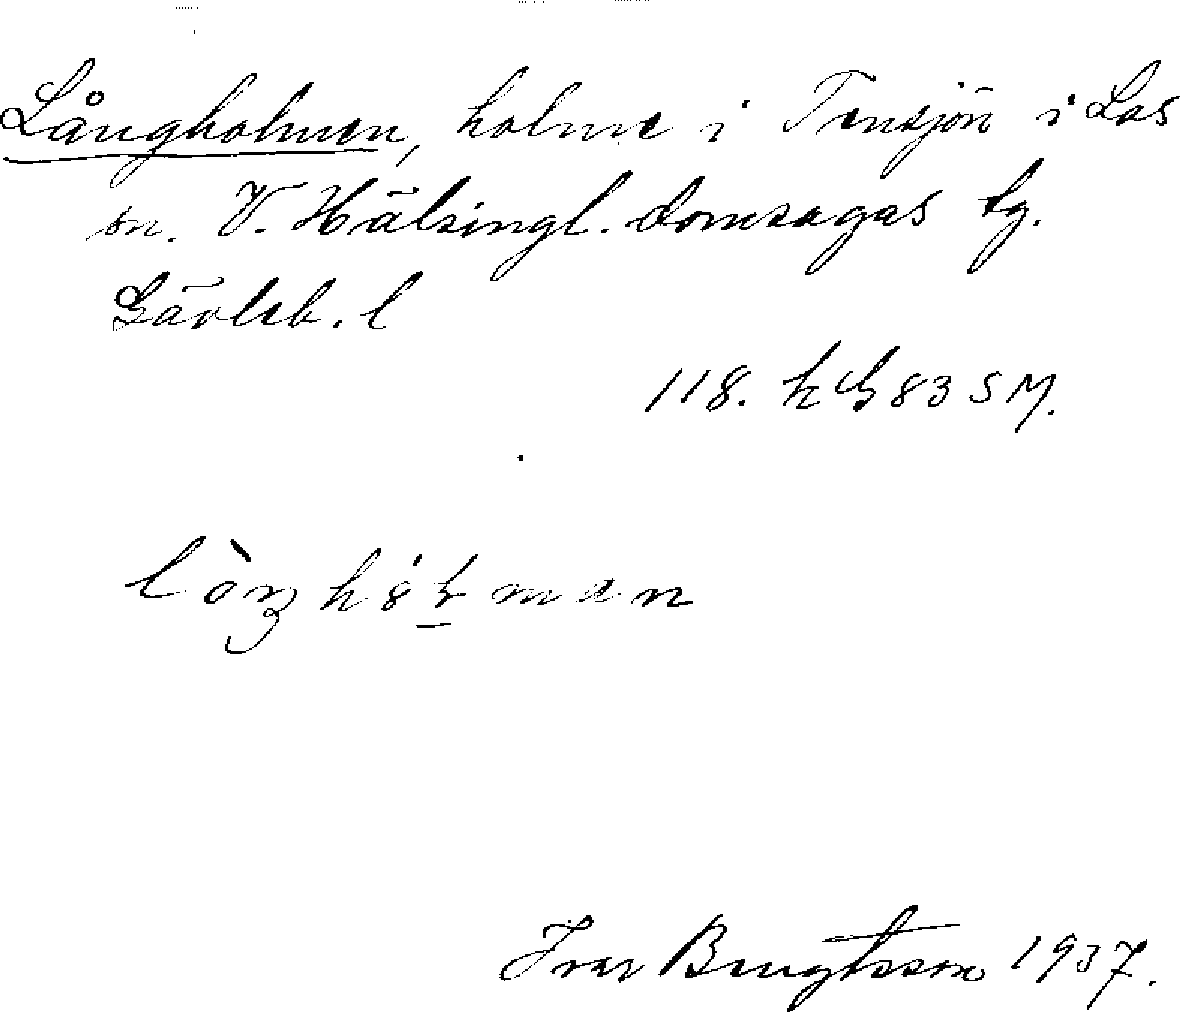 Långholmen, holme i Tensjön i Los
sn. V. Hälsingl. domsagas tg.
Gävleb. l
118. h G 83 SM.
Ivar Bengtsson 1937.